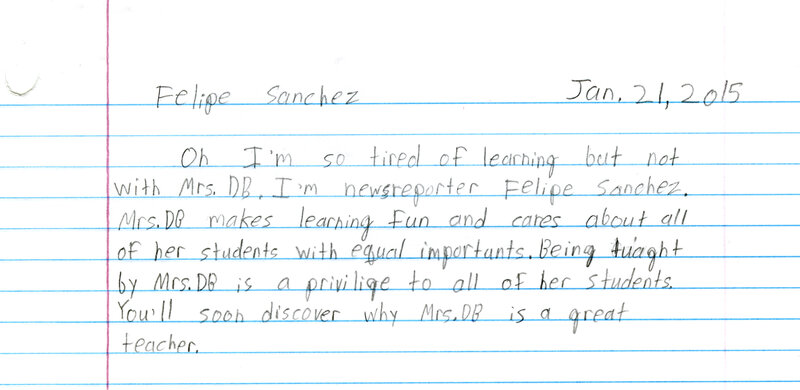 Felipe Sanchez Jan. 21, 2015
Oh I'm so tired of learning but not
with Mrs. DB. I'm newsreporter Felipe Sanchez.
Mrs. DB makes learning fun and cares about all
of her students with equal importants. Being tuaght
by Mrs. DB is a privilige to all of her students.
You'll soon discover why Mrs. DB is a great
teacher.